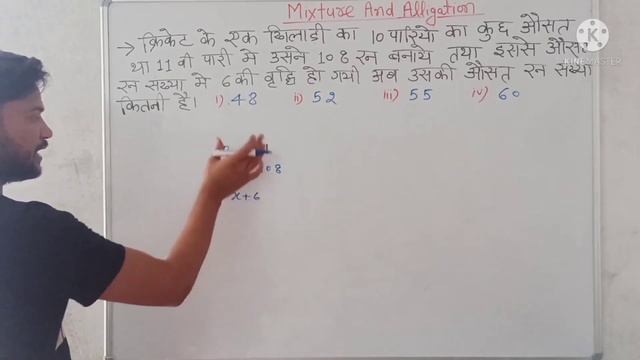 Mixture And Alligation
→ क्रिकेट के एक खिलाडी का 10 पारियो का कुछ औसत
था 11 वी पारी मे उसने 108 रन बनाये तथा इससे औसत
रन सख्या मे 6 की वृध्दि हो गयी अब उसकी औसत रन सख्या
कितनी है। i) 48 ii) 52 iii) 55 iv) 60
08
x+6
KINEMASTER